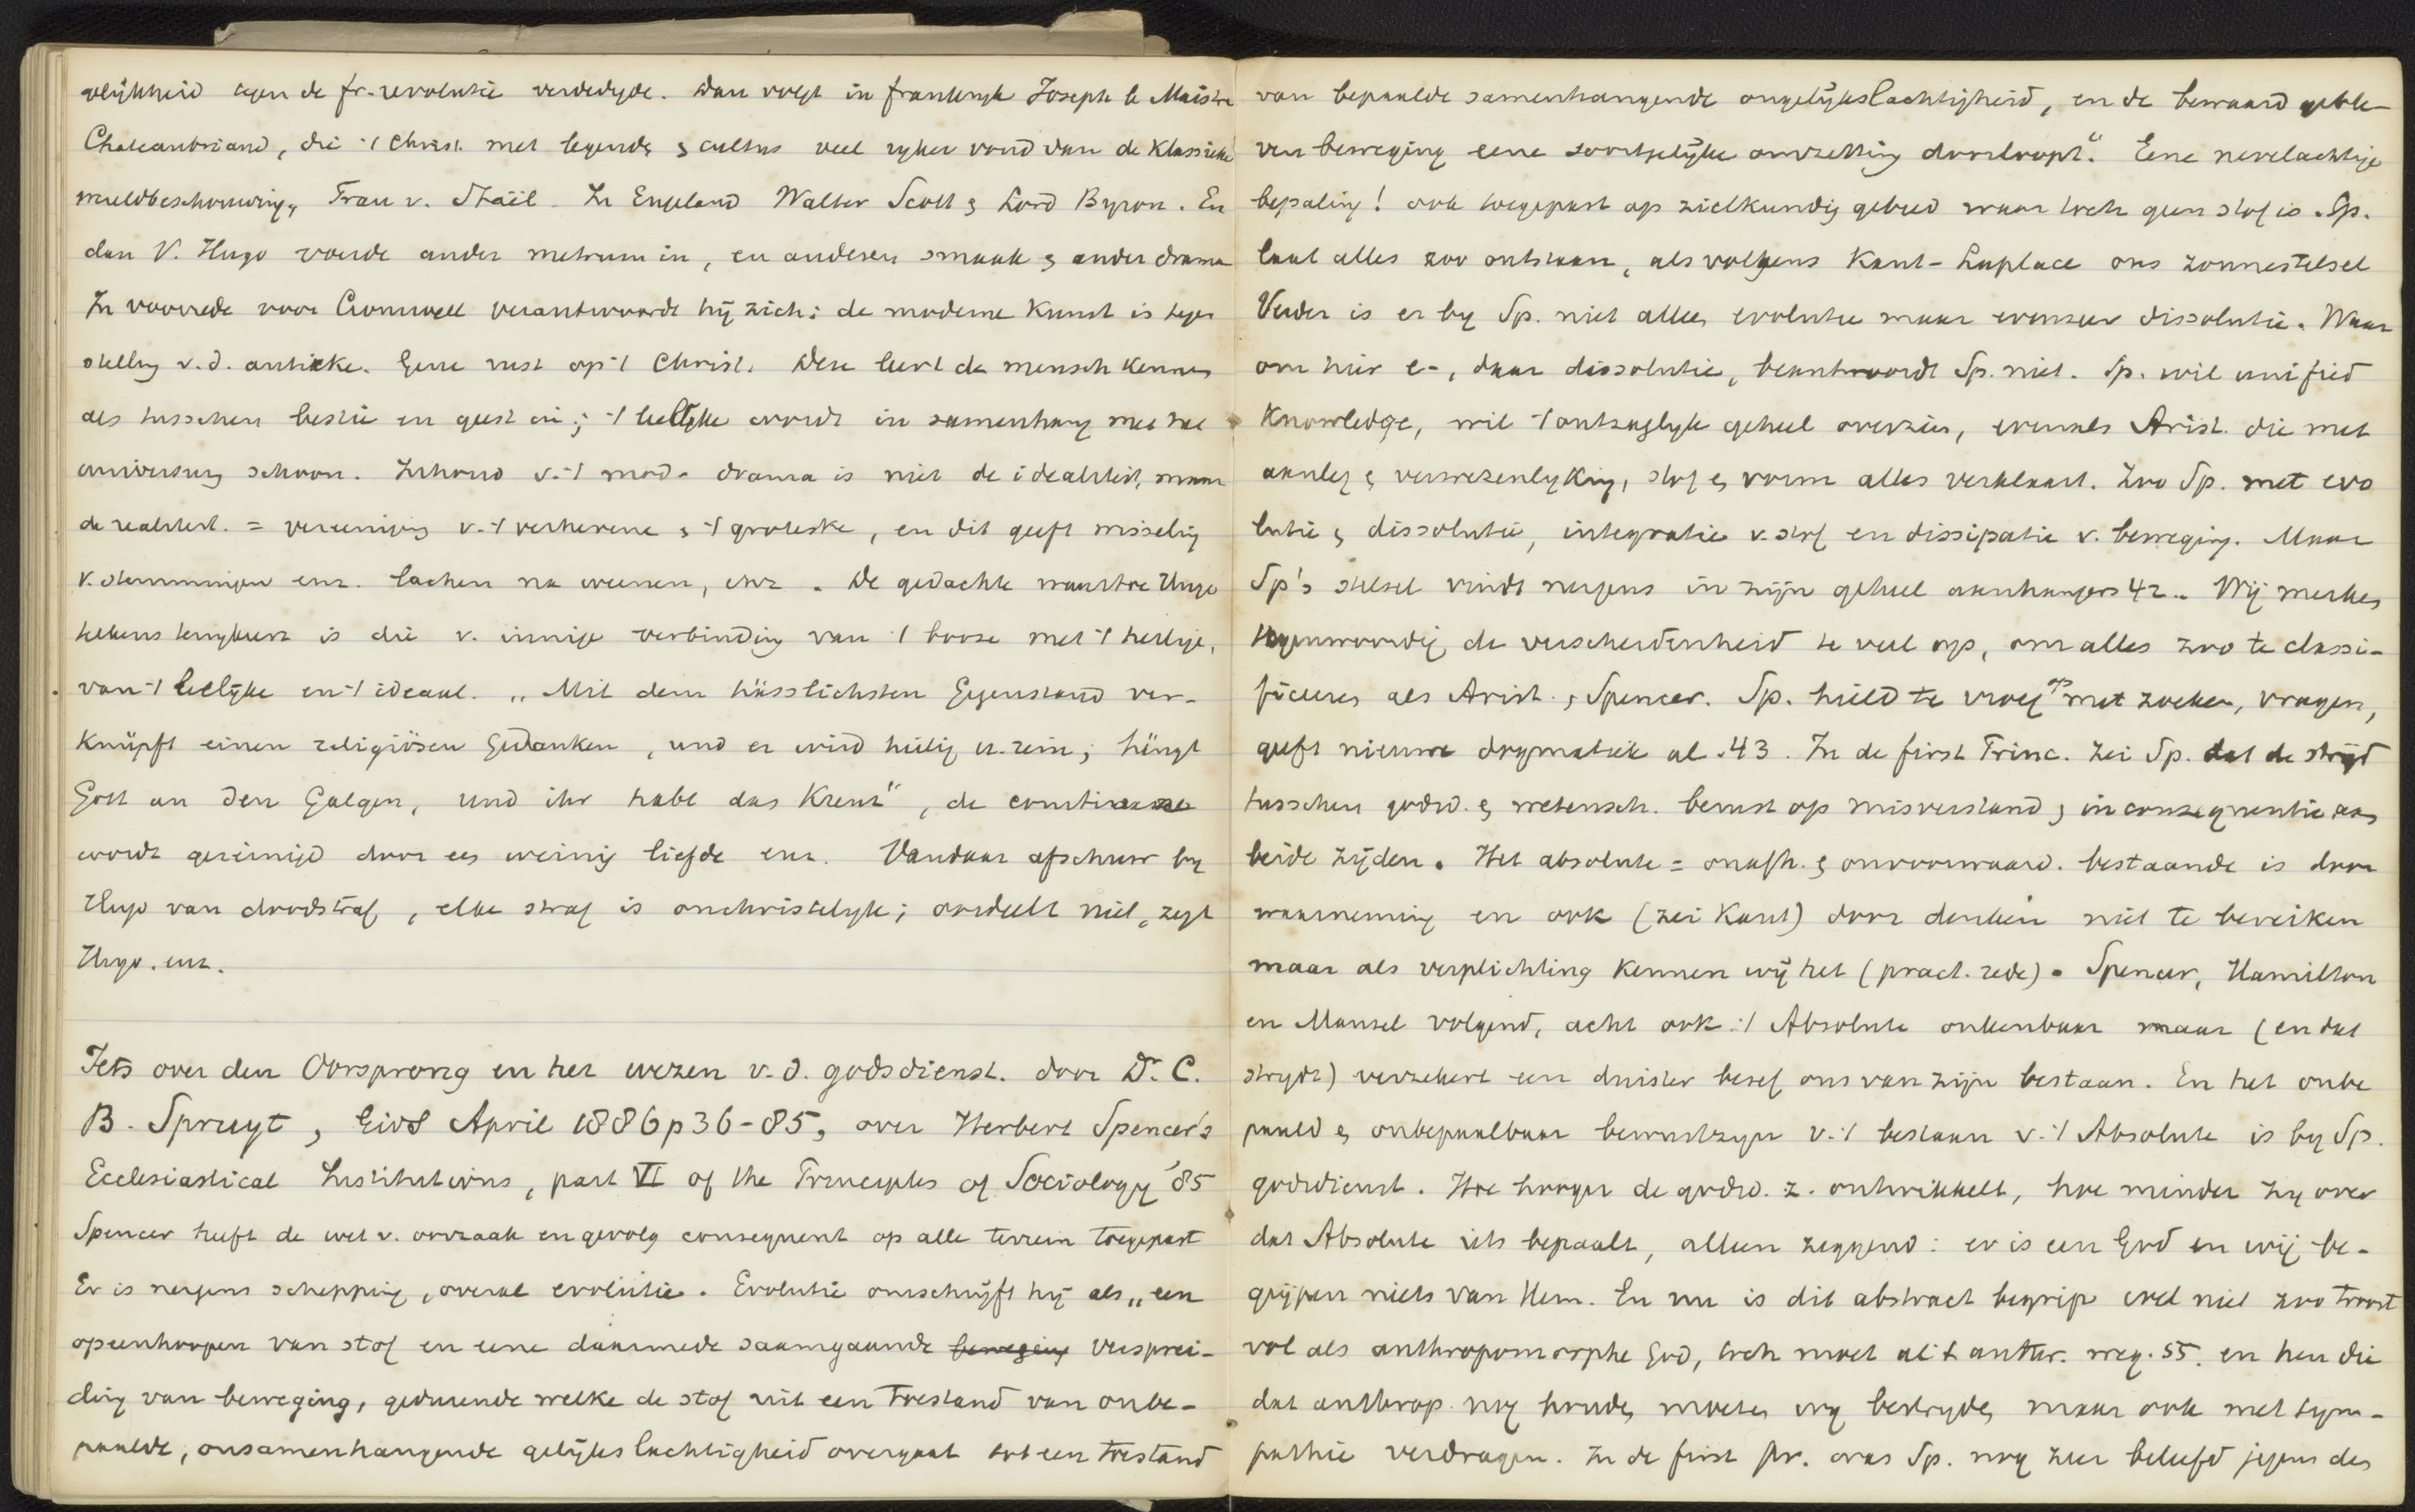 olijkheid tegen de fr. revolutie verdedigde. Dan volgt in frankryk Joseph le Maistre
Chateaubriand, die 't Christ. met legende & cultus veel ryker vond dan de Klassieke
wereldbeschouwing, Frau v. Staël. In Engeland Walter Scott & Lord Byron. En
dan V. Hugo voerde ander metrum in, en anderen smaak & ander drama
In voorrede voor Cromwell verantwoordt hij zich: de moderne Kunst is tegen
stelling v.d. antieke. Gene rust op 't Christ. Deze leert de mensch kennen
als tusschen bestie en geest in; 't leelijke wordt in samenhang met het
universum schoon. Inhoud v. 't mod. drama is niet de idealiteit, maar
de realiteit. = vereeniging v. 't verhevene & 't groteske, en dit geeft wisseling
v. stemmingen enz. lachen na weenen, enz. De gedachte waartoe Hugo
telkens terugkeert is die v. innige verbinding van 't booze met 't heilige,
van 't leelijke en 't ideaal. „Mit dem hässlichsten Gegenstand ver-
knüpft einen religiösen Gedanken, und er wird heilig u. rein; hängt
Gott an den Galgen, und ihr habt das Kreuz", de
wordt gereinigd door een weinig liefde enz. Vandaar afschuw by
Hugo van doodstraf, elke straf is onchristelyk; oordeelt niet, zegt
Hugo. enz.
Iets over den Oorsprong en het wezen v.d. godsdienst. door Dr. C.
B. Spruyt, Gids April 1886 p 36-85, over Herbert Spencer's
Ecclesiastical Institutions, part VI of the Principles of Sociology '85
Spencer heeft de wet v. oorzaak en gevolg consequent op alle terrein toegepast
Er is nergens schepping, overal evolutie. Evolutie omschrijft hij als „een
opeenhoopen van stof en eene daarmede saamgaande beweging verprei-
ding van beweging, gedurende welke de stof uit een toestand van onbe-
paalde, onsamenhangende gelijkslachtigheid overgaat tot een toestand
van bepaalde samenhangende ongelijkslachtigheid, en de bewaard geble-
ven beweging eene soortgelijke omzetting doorloopt". Eene nevelachtige
bepaling! ook toegepast op zielkundig gebied waar toch geen stof is. Sp.
laat alles zoo ontstaan, als volgens Kant-Laplace ons zonnestelsel
Verder is er by Sp. niet alleen evolutie maar evenzeer dissolutie. Waar
om hier e-, daar dissolutie, beantwoordt Sp. niet. Sp. wil unified
Knowledge, wil 't ontzaglyk geheel overzien, evenals Arist. die met
aanleg & verwezenlyking, stof & vorm alles verklaart. Zoo Sp. met evo
lutie & dissolutie, integratie v. stof en dissipatie v. beweging. Maar
Sp's stelsel vindt nergens in zijn geheel aanhangers 42.. Wij merken
tegenwoordig de verscheidenheid te veel op, om alles zoo te classi-
ficeeren als Arist. & Spencer. Sp. hield te vroeg op met zoeken, vragen,
geeft nieuwe dogmatiek al. 43. In de first Princ. zei Sp. dat de strijd
tusschen godsd. & wetensch. berust op misverstand & inconsequentie aan
beide zijden. Het absolute = onafh. & onvoorwaard. bestaande is door
waarneming en ook (zei Kant) door denken niet te bereiken
maar als verplichting kennen wij het (pract. rede). Spencer, Hamilton
en Mansel volgend, acht ook 't Absolute onkenbaar maar (en dat
strydt) verzekert een duister besef ons van zijn bestaan. En het onbe
paald & onbepaalbaar bewustzyn v. 't bestaan v. 't Absolute is by Sp.
godsdienst. Hoe hooger de godsd. z. ontwikkelt, hoe minder zy over
dat Absolute iets bepaalt, alleen zeggend: er is een God en wij be-
grijpen niets van Hem. En nu is dit abstract begrip wel niet zoo troost
vol als anthropomorphe God, toch moet al 't anthr. weg. 55. en hen die
dat anthrop. nog houden, moeten wy bestryden maar ook met sym-
pathie verdragen. In de first Pr. was Sp. nog zeer beleefd jegens den